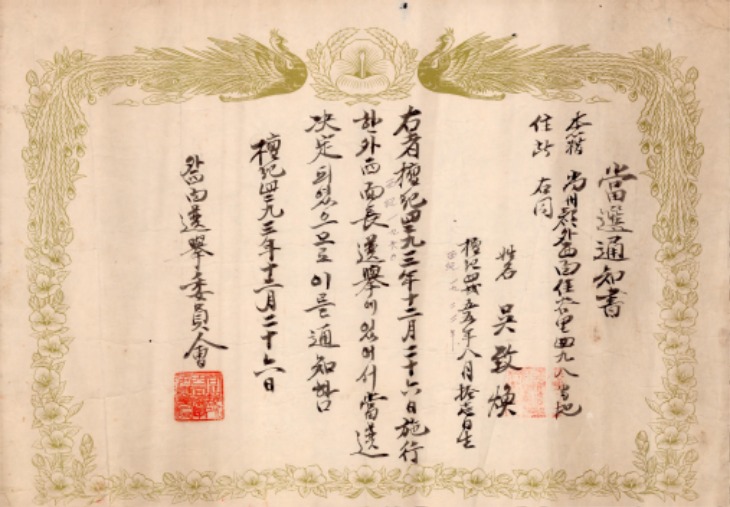 當選通知書
本籍 尙州郡外西面 谷里四九八 地
住所 右同
姓名 吳致煥
檀紀四二五五年八月拾 日生
右者檀紀四二九三年十二月二十六日施行
한 外西面長選擧에있어서當選
決定되었으므로 이를 通知함
檀紀四二九三年十二月二十六日
外西面選擧委員會